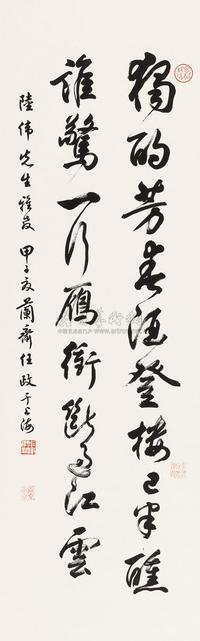 獨酌芳春酒登樓已半醺
誰驚一行雁衝斷過江雲
陸伟先生雅灸 甲子夏蘭齋任政于上海